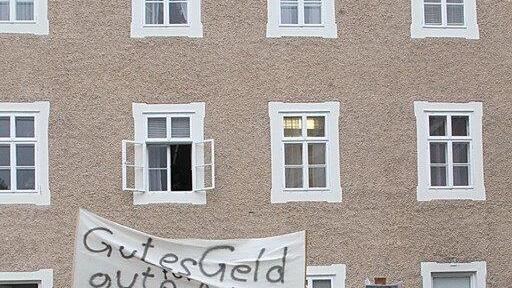 Gutes Geld
für
gute